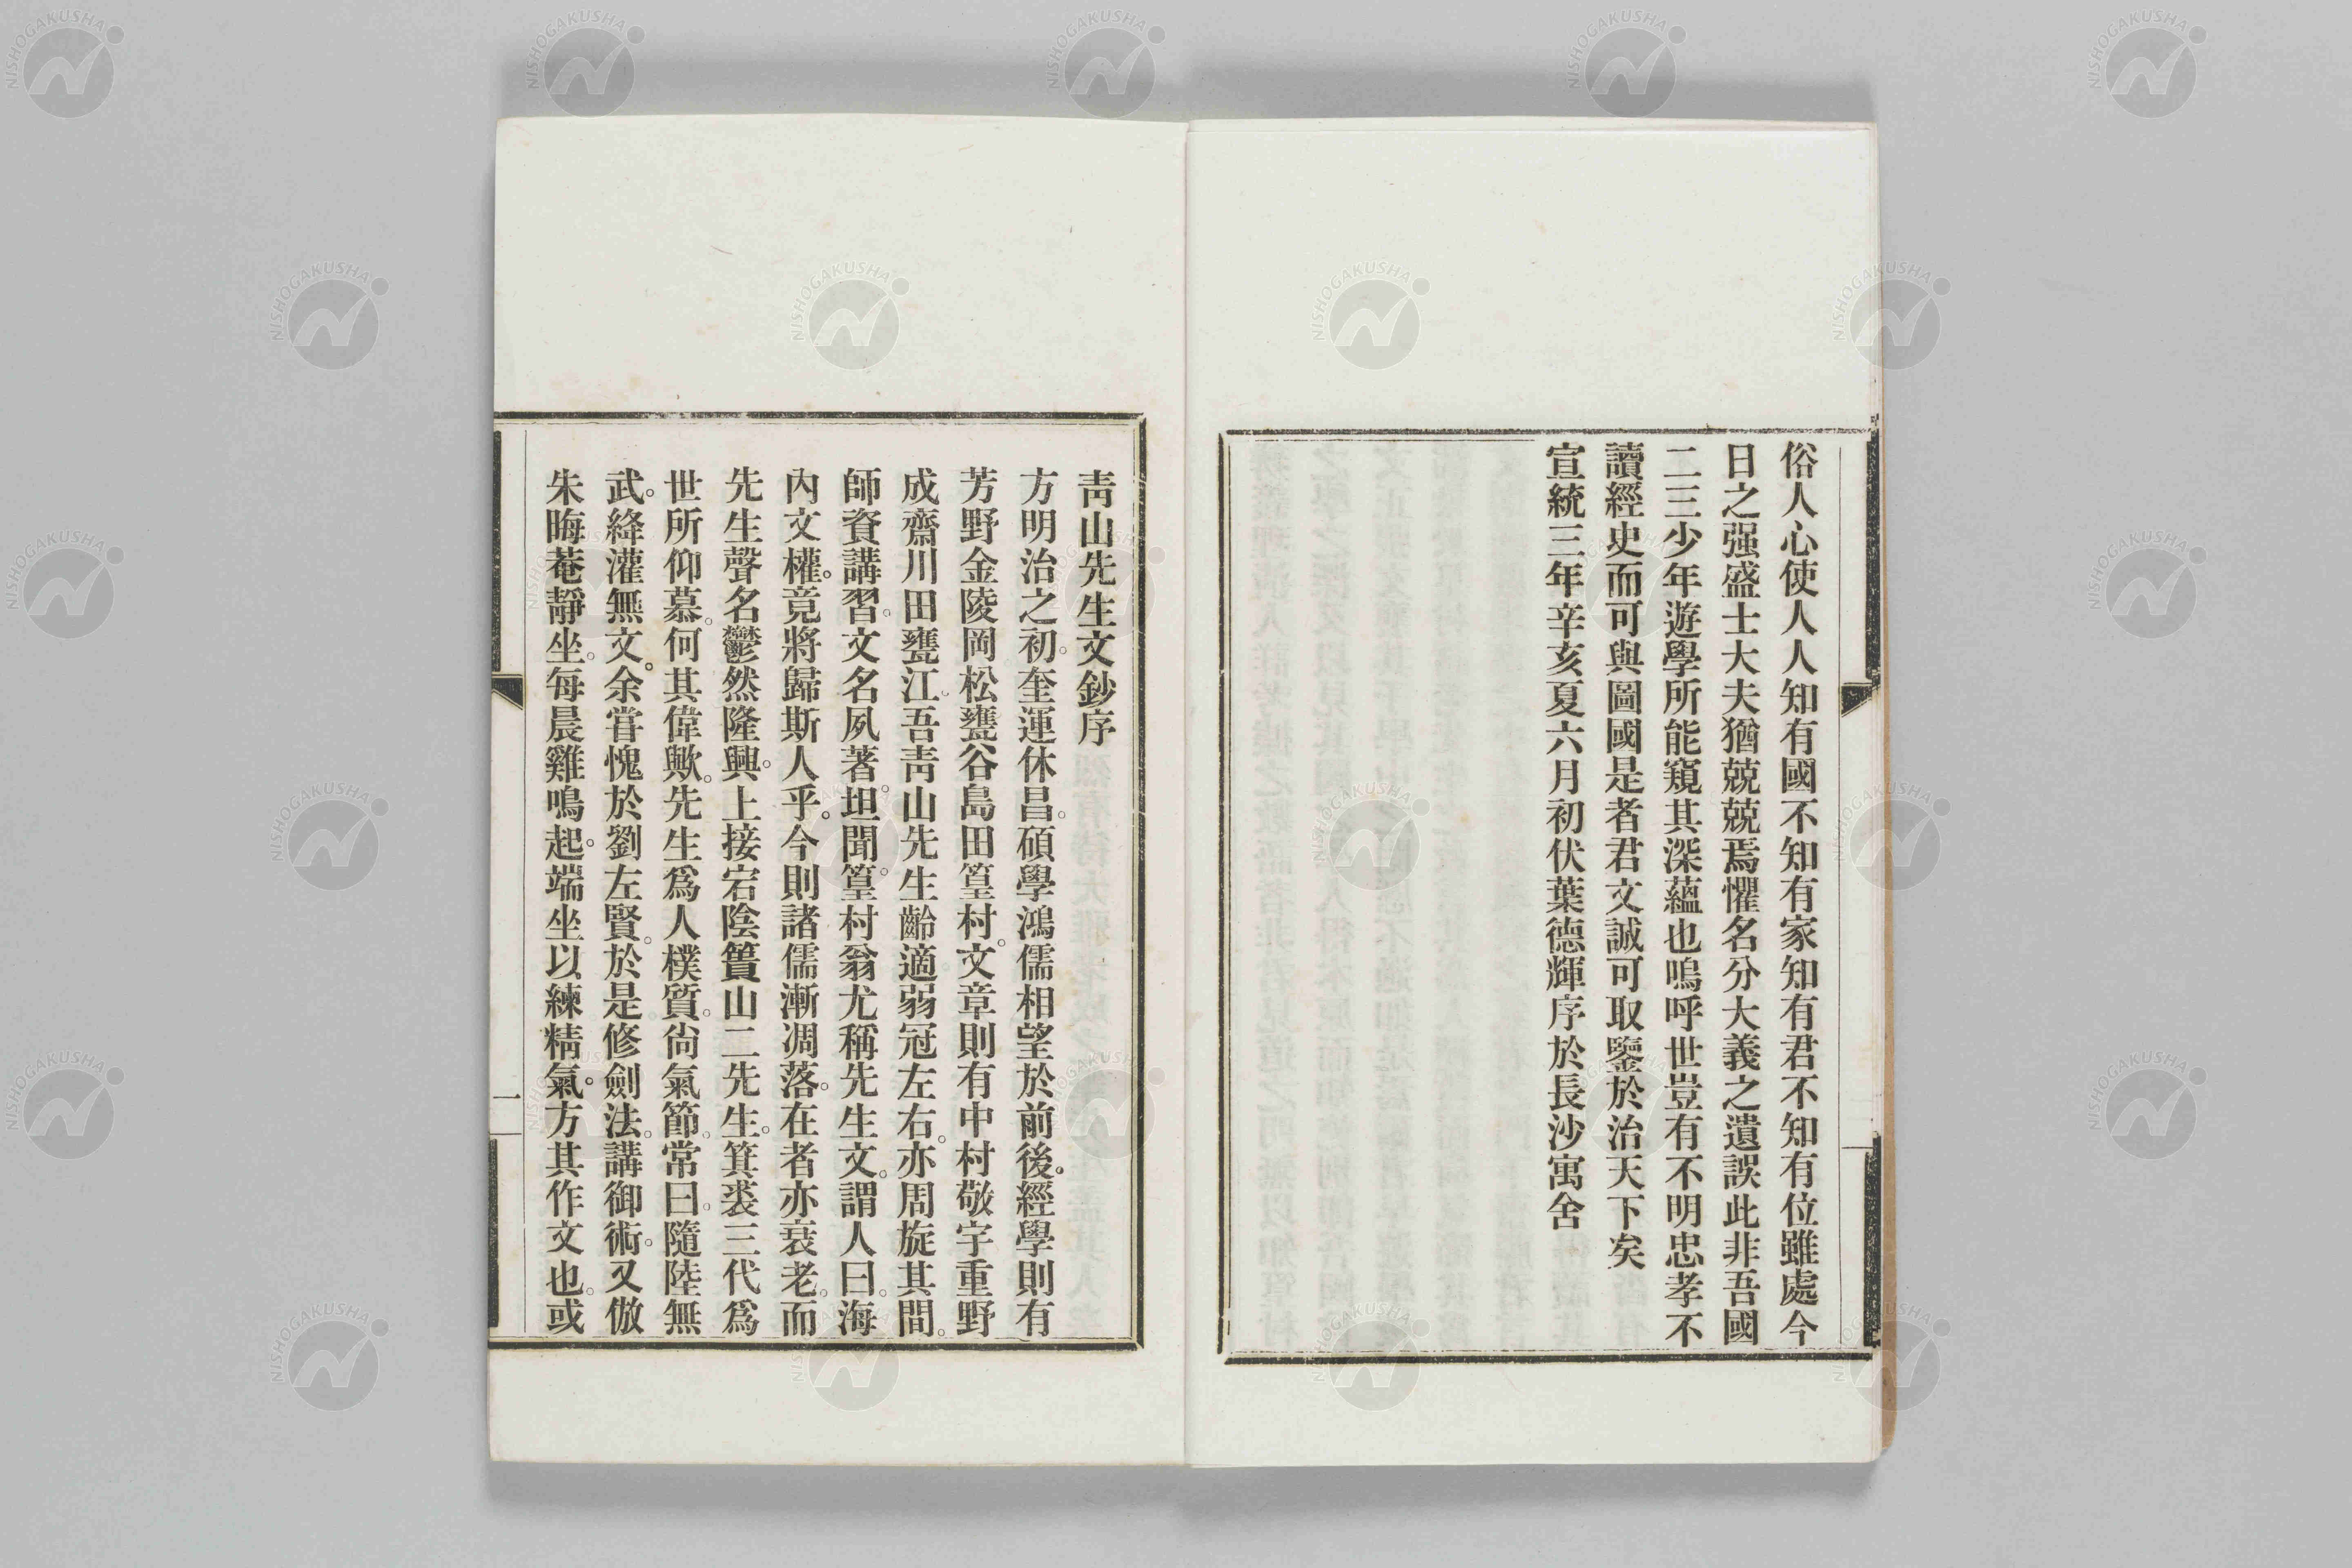 俗人心使人人知有國不知有家知有君不知有位雖處今
日之强盛士大夫猶兢兢焉懼名分大義之遺誤此非吾國
二三少年遊學所能窺其深蘊也嗚呼世豈有不明忠孝不
讀經史而可與圖國是者君文誠可取鑒於治天下矣
宣統三年辛亥夏六月初伏葉德輝序於長沙寓舍
靑山先生文鈔序
方明治之初。奎運休昌。碩學鴻儒相望於前後。經學則有
芳野金陵岡松甕谷島田篁村。文章則有中村敬宇重野
成齋川田甕江。吾靑山先生齡適弱冠左右。亦周旋其間。
師資講習。文名夙著。坦聞。篁村翁尤稱先生文。謂人曰。海
內文權。竟將歸斯人乎。今則諸儒漸凋落。在者亦衰老。而
先生聲名鬱然隆興。上接宕陰簣山二先生。箕裘三代爲
世所仰慕。何其偉歟。先生爲人樸質。尙氣節。常曰。隨陸無
武。絳灌無文。余嘗愧於劉左賢。於是修劍法。講御術。又倣
朱晦菴靜坐。每晨雞鳴起。端坐以練精氣。方其作文也。或
一
NISHOGAKUSHA